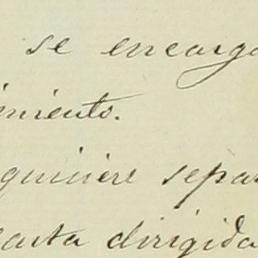 se encarga
imiento.
quiere sepa
carta dirigida